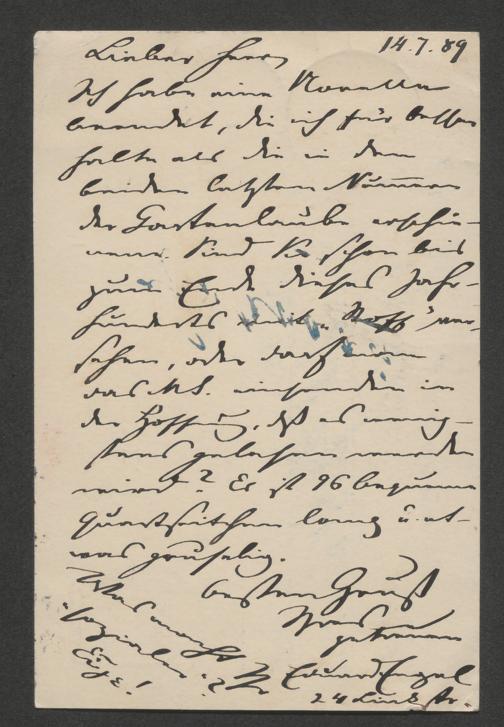 14.7.89
Lieber Herr,
Ich habe eine Novelle
beendet, die ich für besser
halte als die in den
beiden letzten Nummern
der Gartenlaube erschie-
nene. Sind Sie schon bis
zum Ende dieses Jahr-
hunderts mit „Stoff" ver-
sehen, oder darf einem
das MS. einsenden in
der Hoffnung, daß es wenig-
stens gelesen werden
wird? Es ist 96 bequeme
Quartseitchen lang u. et-
was gruselig.
Besten Gruß
Ihres
getreuen
Eduard Engel
24 Link Str.
Was macht Ihr
„sozialer"